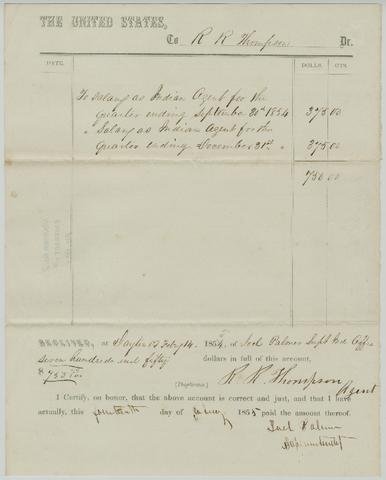 THE UNITED STATES,
To R R Thompson Dr.
DATE. DOLLS. CTS.
To Salary as Indian Agent for the
Quarter ending September 30th 1854 375 00
" Salary as Indian Agent for the
Quarter ending December 31st " 375 00
750 00
RECEIVED, at Dayton O T Feby 14. 1855, of Joel Palmer Supt Ind Affrs
Seven hundred and fifty dollars in full of this account,
$ 750 00/100
R. R. Thompson
[Duplicate.] Agent
I Certify, on honor, that the above account is correct and just, and that I have
actually, this fourteenth day of Feby 1855 paid the amount thereof.
Joel Palmer
Superintendent